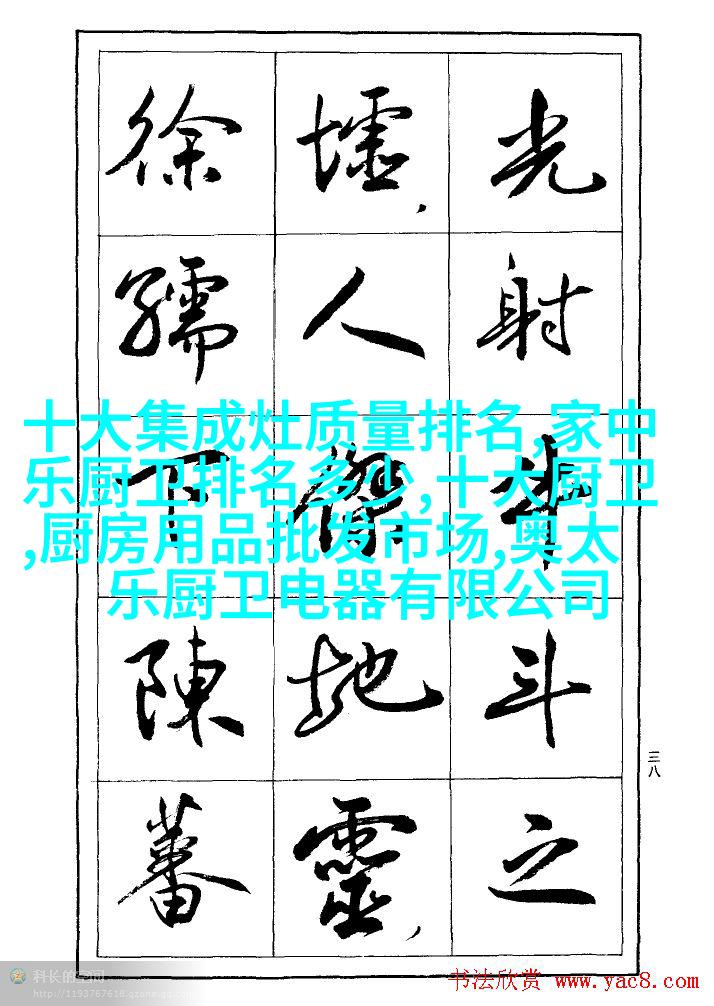 光射牛斗之
墟,人傑地靈,
徐孺下陳蕃
十大集成灶质量排名,家中
乐厨卫排名多少,十大厨卫
,厨房用品批发市场,奥太
乐厨卫电器有限公司
三八
科长的空间
http://1193767618.qzone.qq.com
书法欣赏 www.yac8.com